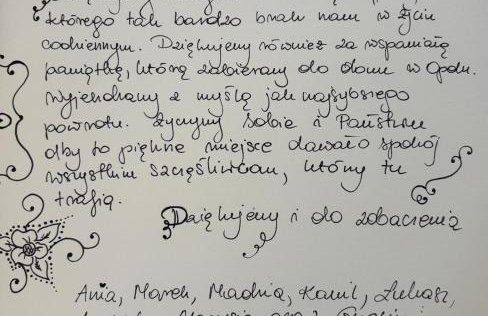 którego tak bardzo brak nam w życiu
codziennym. Dziękujemy również za wspaniałą
pamiątkę, którą zabieramy do domu w Opolu.
Wyjeżdżamy z myślą jak najszybszego
powrotu. Życzymy sobie i Państwu
aby to piękne miejsce dawało spokój
wszystkim szczęśliwcom, którzy tu
trafią.
Dziękujemy i do zobaczenia
Ania, Marek, Kamil, Łukasz,